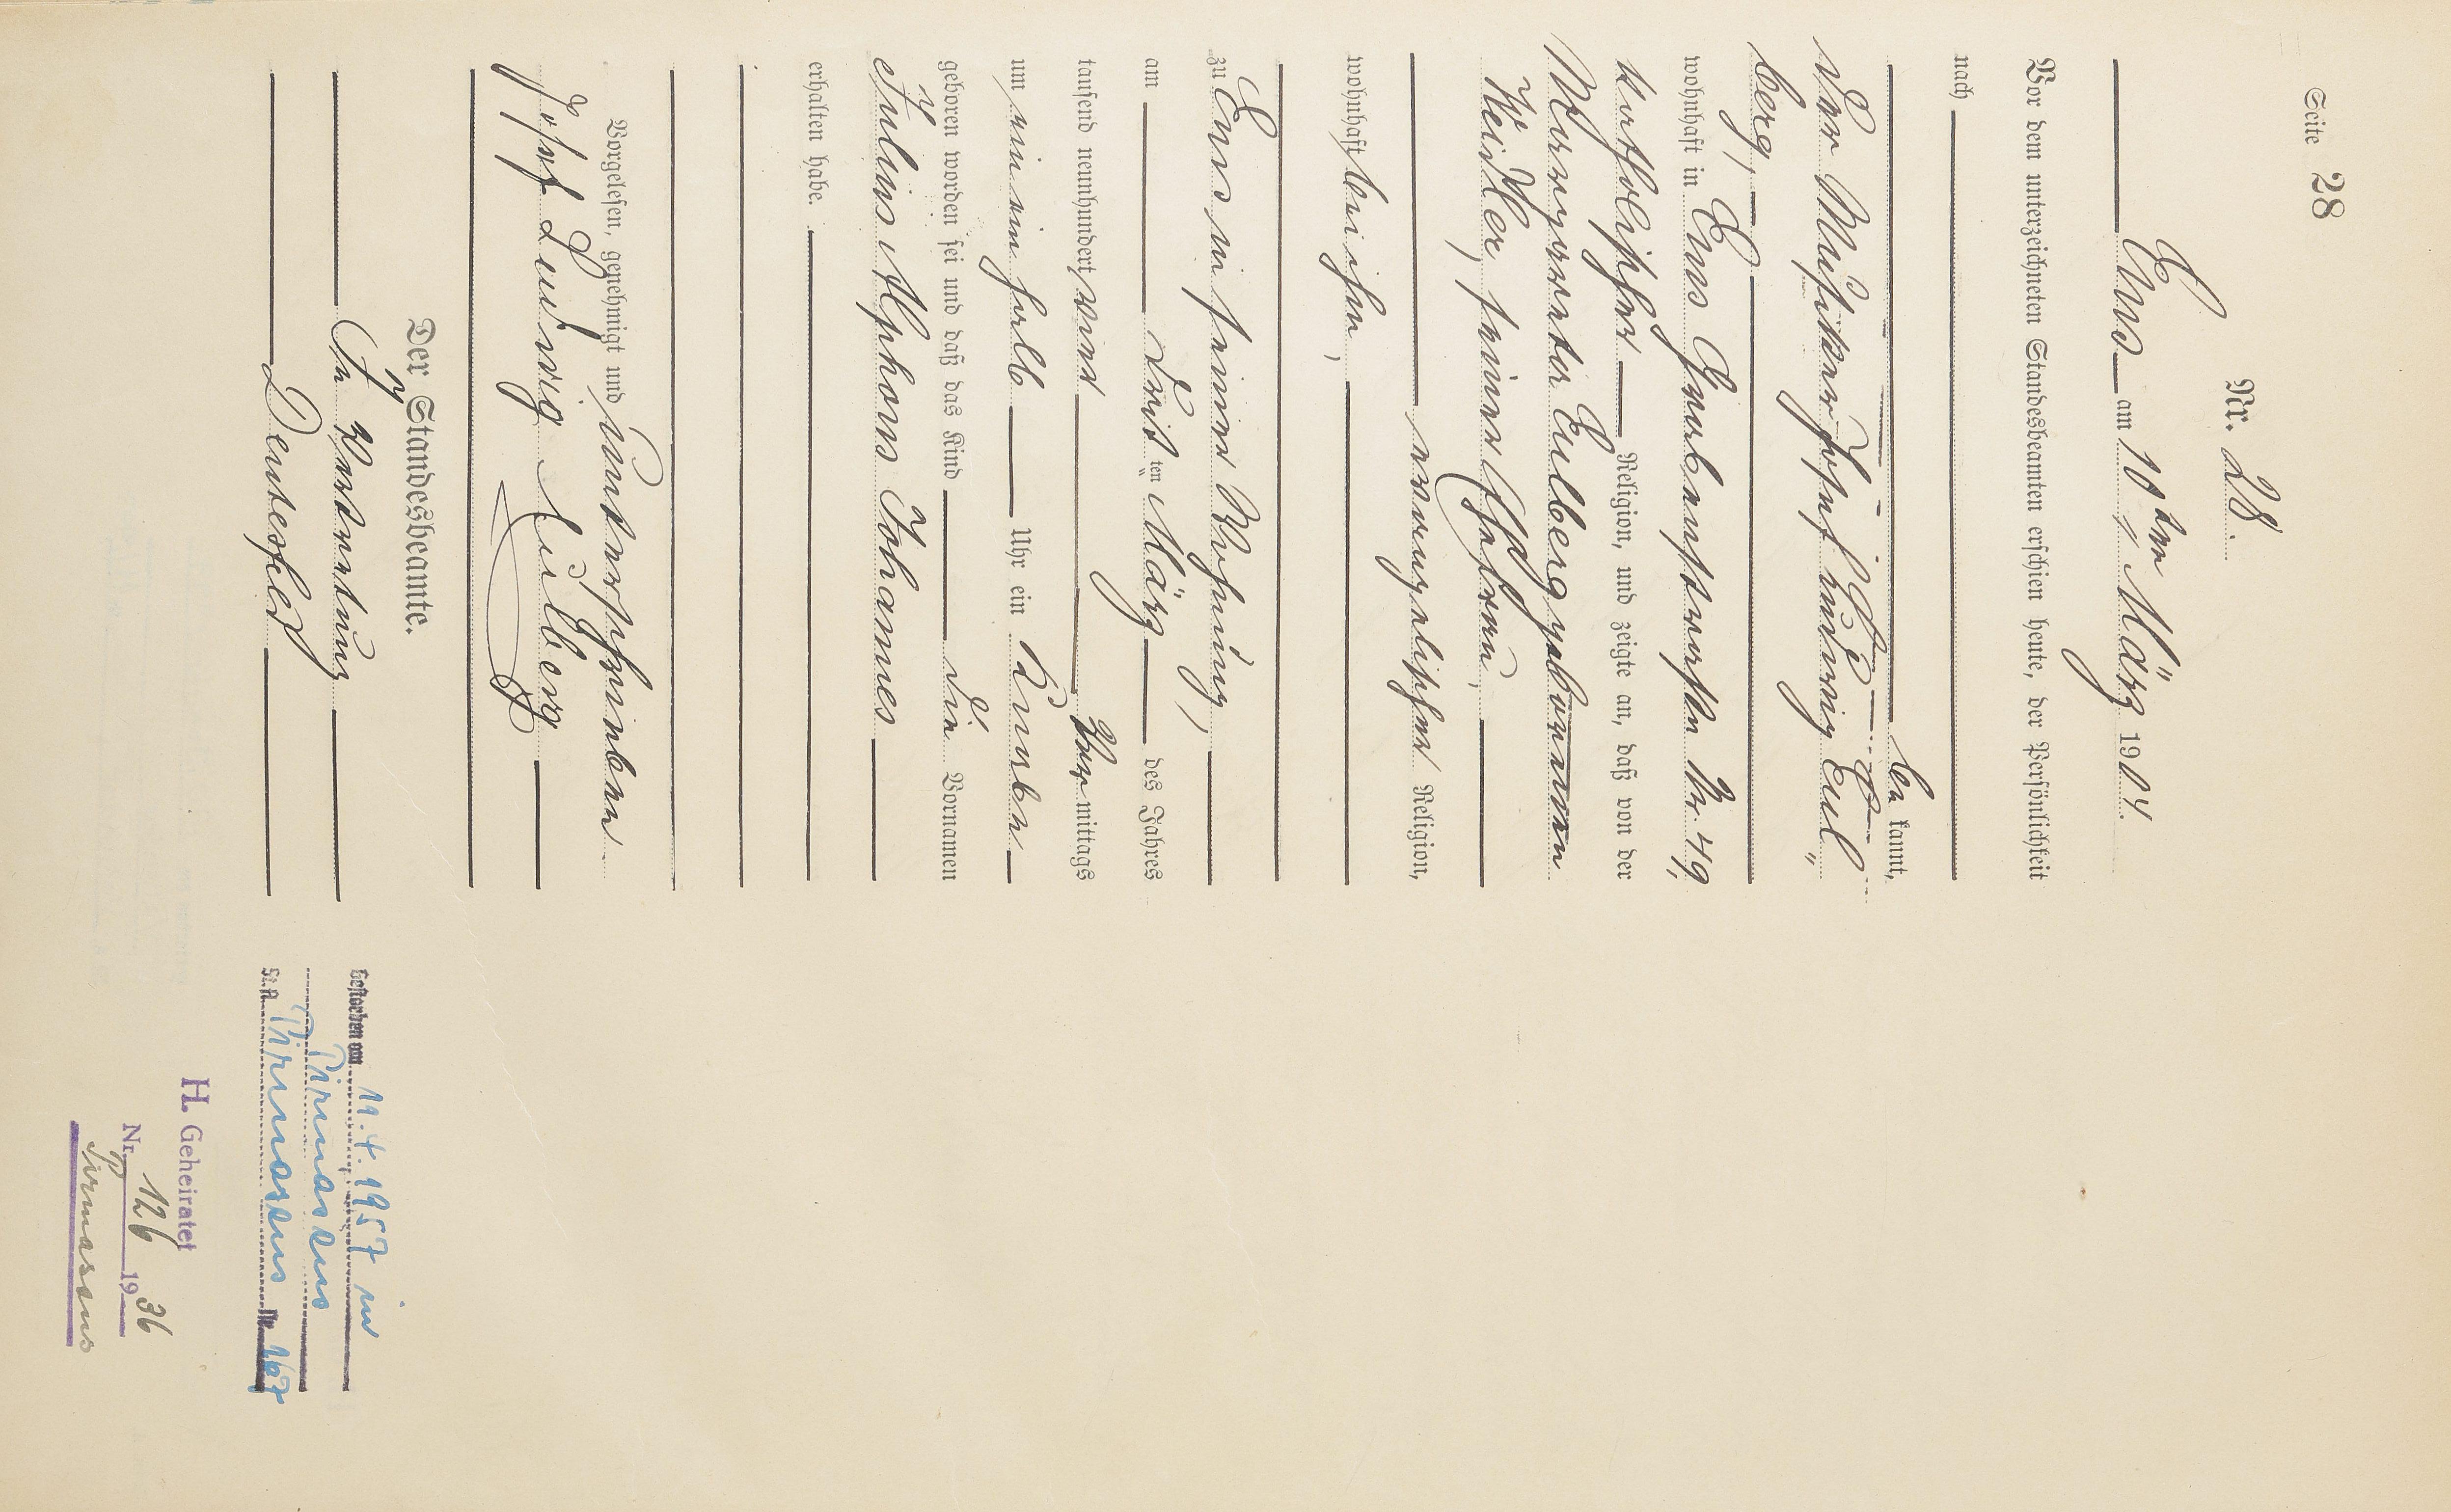 Seite 28
Nr. 28.
Ems am 10ten März 1904.
Vor dem unterzeichneten Standesbeamten erschien heute, der Persönlichkeit
nach
be kannt,
der Musiker Josef Ludwig Eul„
berg,
wohnhaft in Ems Grabenstraße Nr. 49,
katholischer Religion, und zeigte an, daß von der
Margareta Eulberg geborenen
Weidler, seiner Ehefrau,
evangelischer Religion,
wohnhaft bei ihm,
zu Ems in seiner Wohnung,
am dritten März des Jahres
tausend neunhundert vier Vormittags
um ein ein halb Uhr ein Knabe
geboren worden sei und daß das Kind die Vornamen
Julius Alphons Johannes
erhalten habe.
Vorgelesen, genehmigt und unterschrieben
Josef Ludwig Eulberg
Der Standesbeamte.
In Vertretung
Deutesfeld
Gestorben am 11.4.1957 in
Pirmasens
St.A. Pirmasens Nr. 167
H. Geheiratet
Nr. 126 1936
Pirmasens